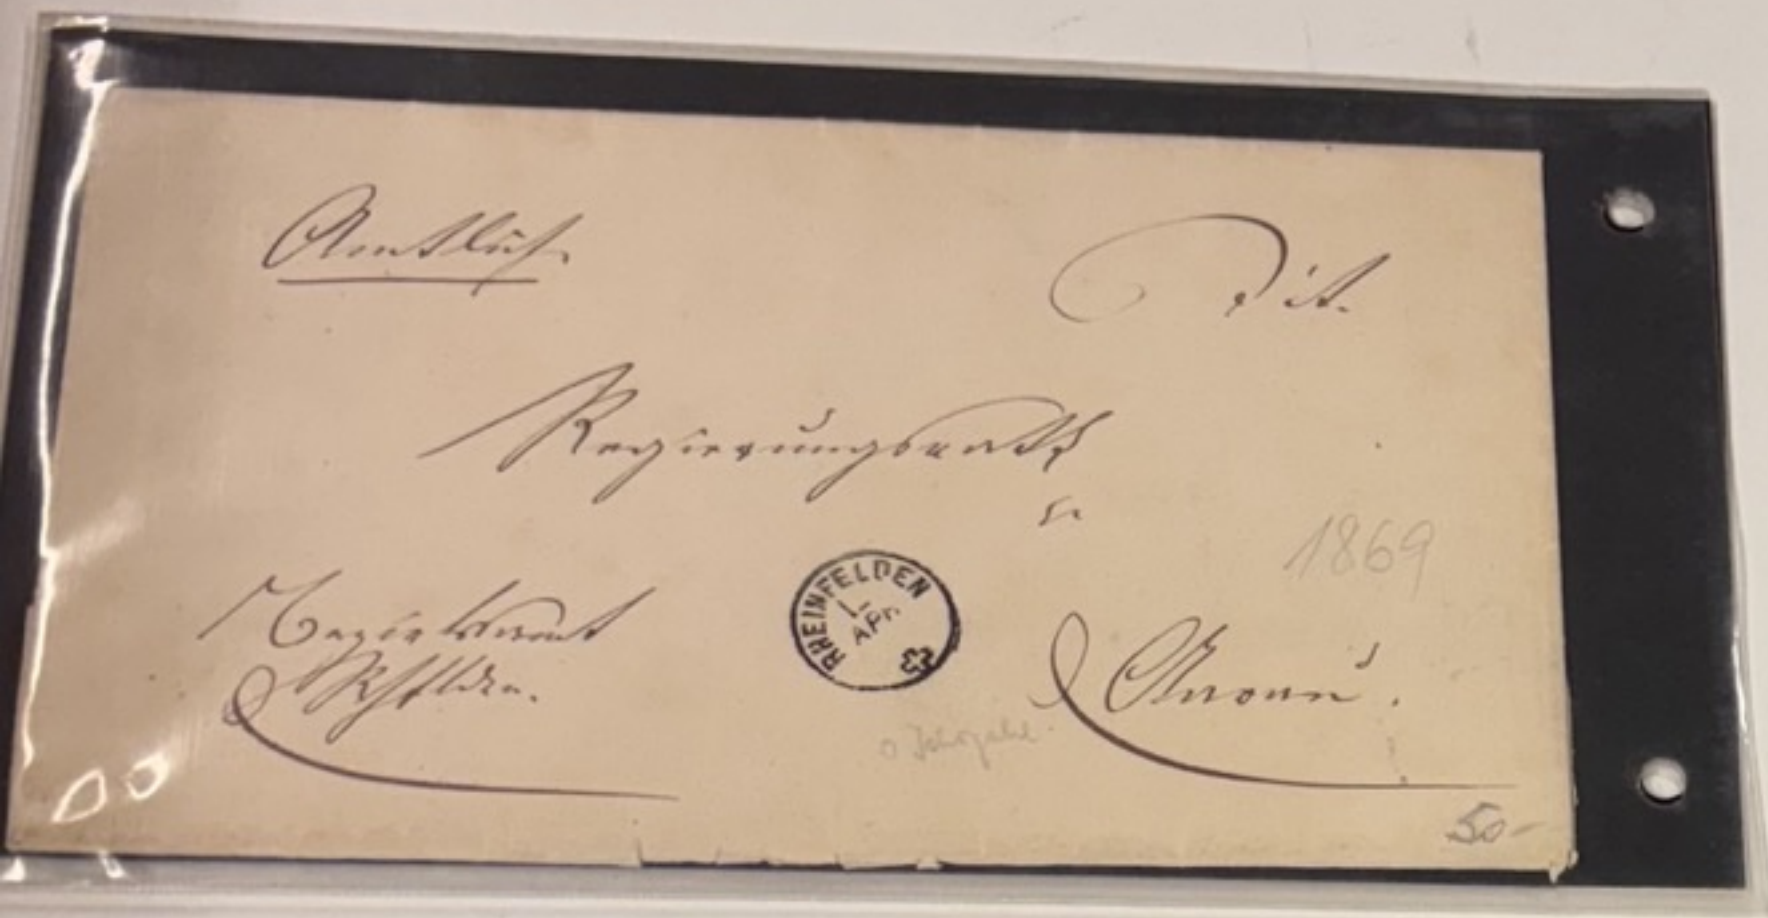 Amtlich.
Tit.
Regierungsrath
in
1869
Bezirksamt
Rhflden.
RHEINFELDEN
1 APR
Aarau.
0 Jahrzahl
50-